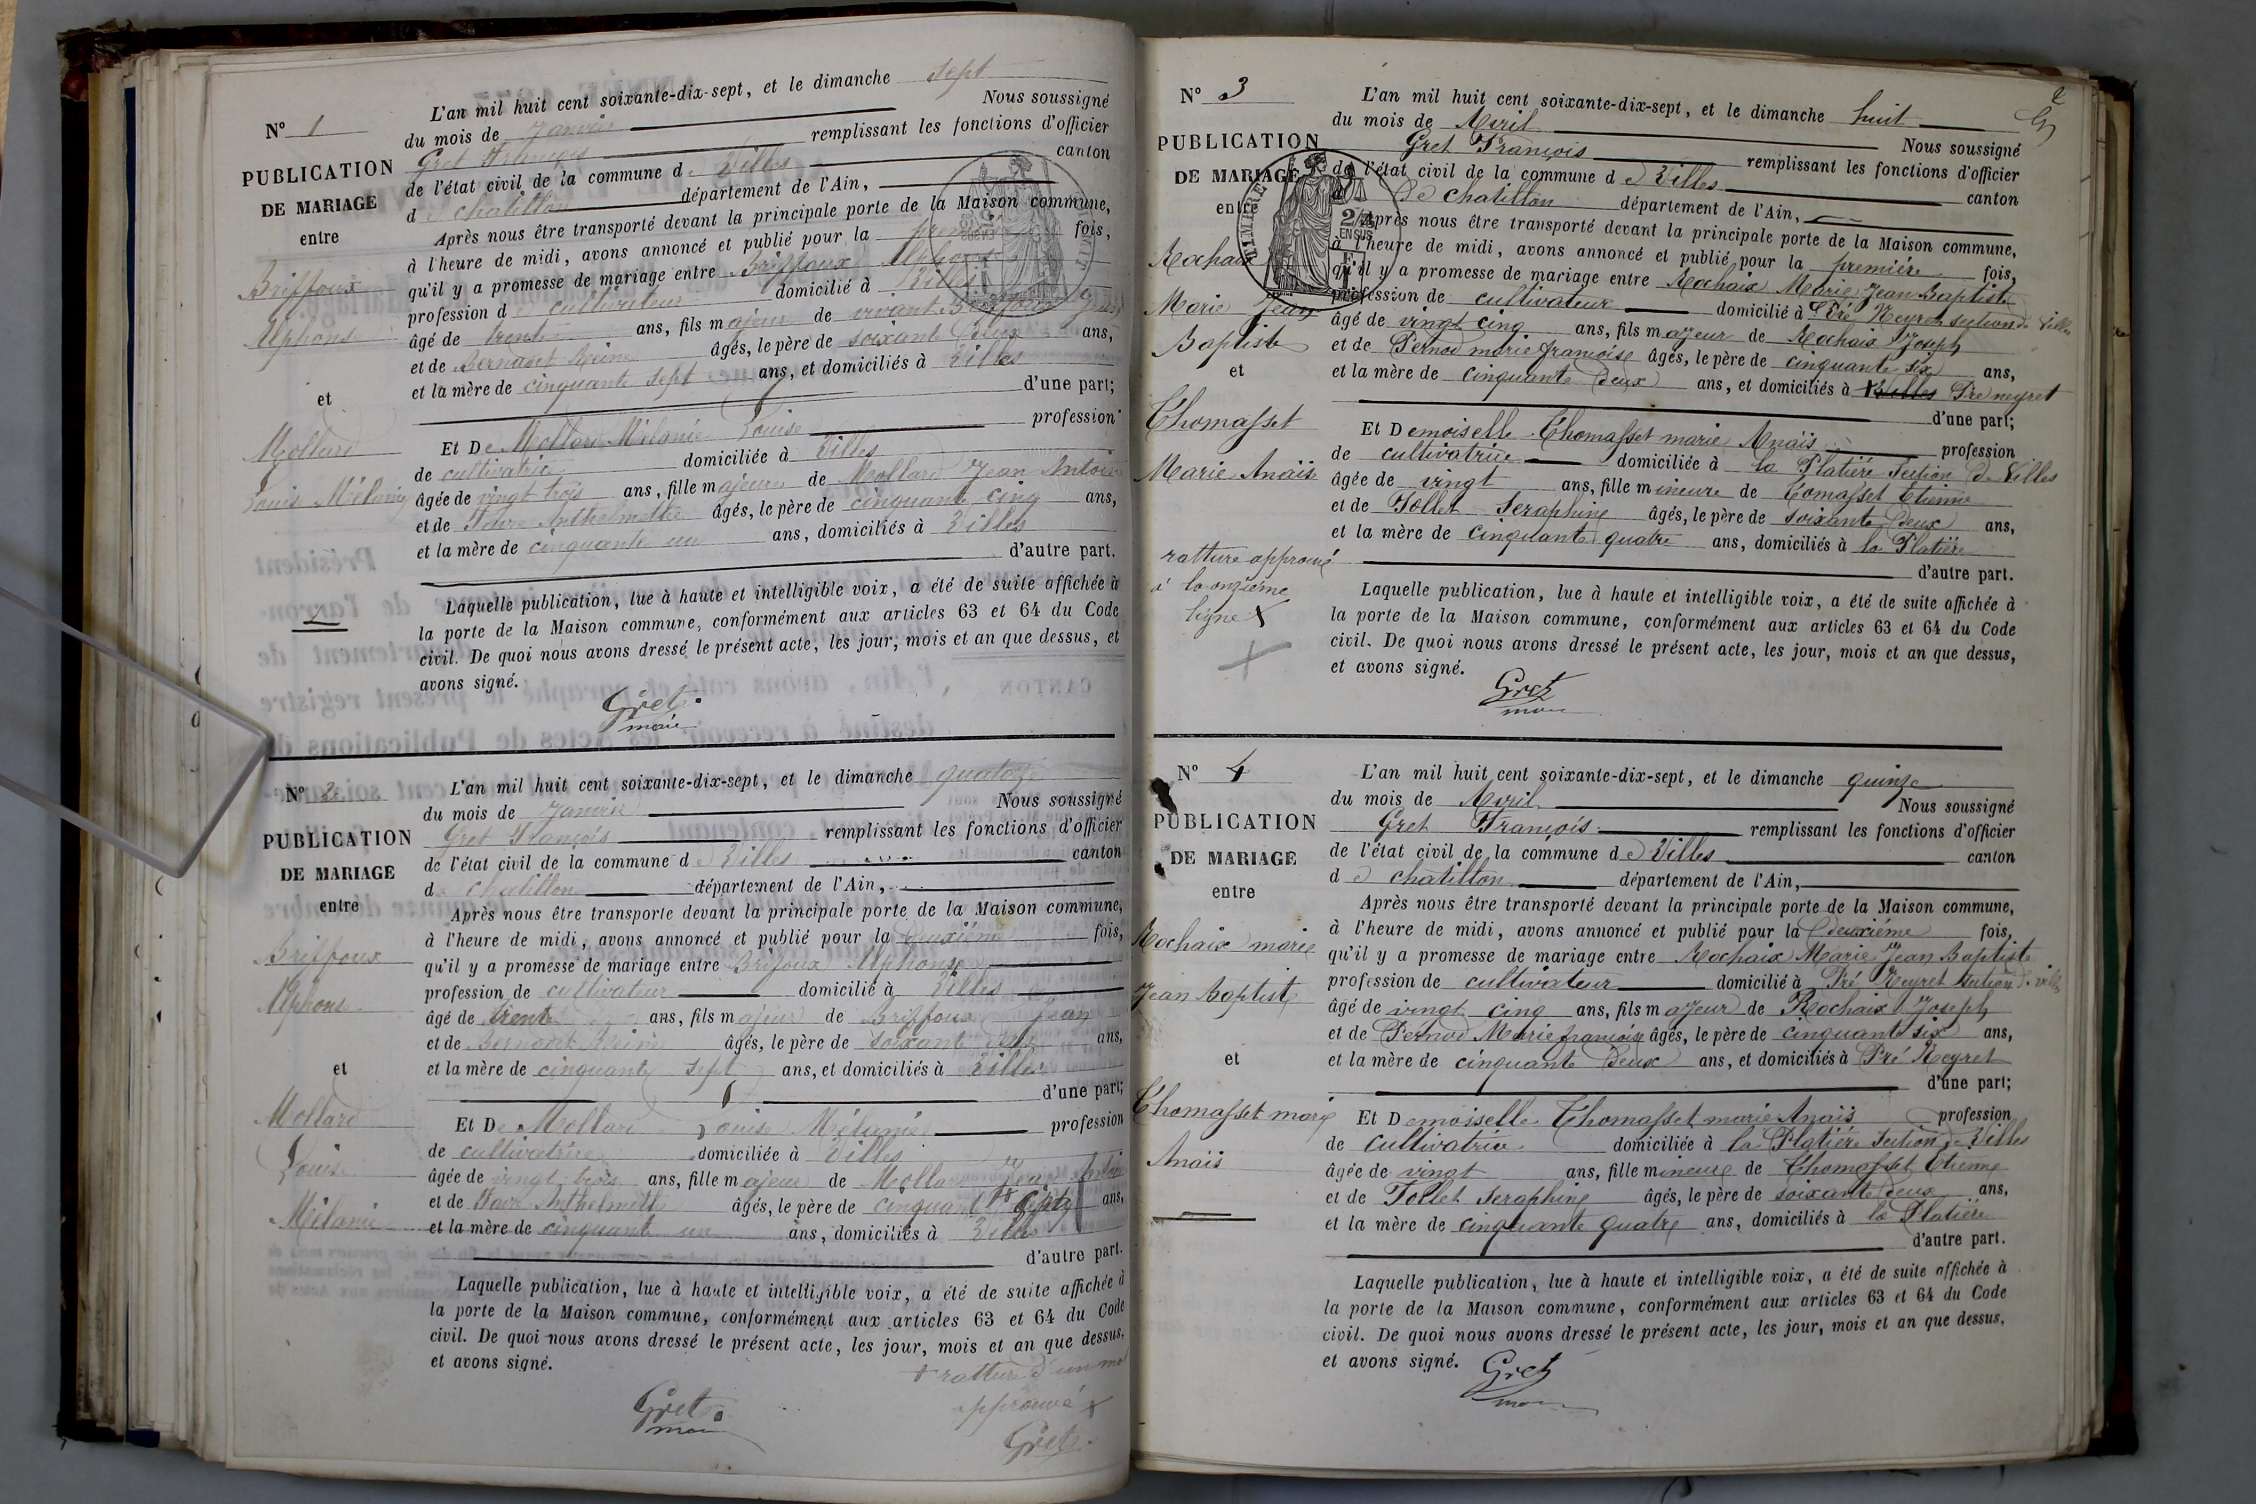 N° 1
PUBLICATION
DE MARIAGE
entre
Briffoux
Alphonse
et
Mollard
Louise Mélanie
L'an mil huit cent soixante-dix-sept, et le dimanche sept
du mois de Janvier Nous soussigné
Gret François remplissant les fonctions d'officier
de l'état civil de la commune de Villes canton
de chatillon département de l'Ain,
Après nous être transporté devant la principale porte de la Maison commune,
à l'heure de midi, avons annoncé et publié pour la première fois,
qu'il y a promesse de mariage entre Briffoux Alphonse
profession d cultivateur domicilié à Villes
âgé de trente ans, fils majeur de vivant Briffoux Jean
et de Bernard Reine âgés, le père de soixante deux ans,
et la mère de cinquante sept ans, et domiciliés à Villes
d'une part;
Et De Mollard Mélanie Louise profession
de cultivatrice domiciliée à Villes
âgée de vingt trois ans, fille majeure de Mollard Jean Antoine
et de Favre Anthelmette âgés, le père de cinquante cinq ans,
et la mère de cinquante un ans, domiciliés à Villes
d'autre part.
Laquelle publication, lue à haute et intelligible voix, a été de suite affichée à
la porte de la Maison commune, conformément aux articles 63 et 64 du Code
civil. De quoi nous avons dressé le présent acte, les jour, mois et an que dessus, et
avons signé.
Gret
maire
N° 2
PUBLICATION
DE MARIAGE
entre
Briffoux
Alphons
et
Mollard
Louise
Mélanie
L'an mil huit cent soixante-dix-sept, et le dimanche quatorze
du mois de Janvier Nous soussigné
Gret François remplissant les fonctions d'officier
de l'état civil de la commune de Villes canton
d chatillon département de l'Ain,
Après nous être transporté devant la principale porte de la Maison commune,
à l'heure de midi, avons annoncé et publié pour la deuxième fois,
qu'il y a promesse de mariage entre Brifoux Alphonse
profession de cultivateur domicilié à Villes
âgé de trente ans, fils majeur de Briffoux Jean
et de Bernard Reine âgés, le père de soixante deux ans,
et la mère de cinquante sept ans, et domiciliés à Villes
d'une part;
Et De Mollard Louise Mélanie profession
de cultivatrice domiciliée à Villes
âgée de vingt trois ans, fille majeur de Mollard Jean Antoine
et de Favre Anthelmette âgés, le père de cinquante ans,
et la mère de cinquante un ans, domiciliés à Villes
d'autre part.
Laquelle publication, lue à haute et intelligible voix, a été de suite affichée à
la porte de la Maison commune, conformément aux articles 63 et 64 du Code
civil. De quoi nous avons dressé le présent acte, les jour, mois et an que dessus,
et avons signé.
+ rature d'un mot
approuvé +
Gret
maire
Gret
N° 3
PUBLICATION
DE MARIAGE
entre
Rochaix
Marie Jean
Baptiste
et
Thomasset
Marie Anaïs
ratture approuvé
à la onzième
ligne +
2
L'an mil huit cent soixante-dix-sept, et le dimanche huit
du mois de Avril Nous soussigné
Gret François remplissant les fonctions d'officier
de l'état civil de la commune de Villes canton
de chatillon département de l'Ain,
Après nous être transporté devant la principale porte de la Maison commune,
à l'heure de midi, avons annoncé et publié pour la première fois,
qu'il y a promesse de mariage entre Rochaix Marie Jean Baptiste
profession de cultivateur domicilié à Pré Neyret section de Villes
âgé de vingt cinq ans, fils majeur de Rochaix Joseph
et de Pernod marie françoise âgés, le père de cinquante six ans,
et la mère de cinquante deux ans, et domiciliés à + Villes Pré neyret
d'une part;
Et Demoiselle Thomasset marie Anaïs profession
de cultivatrice domiciliée à la Platière Section de Villes
âgée de vingt ans, fille mineure de Tomasset Etienne
et de Tollet Seraphine âgés, le père de soixante deux ans,
et la mère de cinquante quatre ans, domiciliés à la Platière
d'autre part.
Laquelle publication, lue à haute et intelligible voix, a été de suite affichée à
la porte de la Maison commune, conformément aux articles 63 et 64 du Code
civil. De quoi nous avons dressé le présent acte, les jour, mois et an que dessus,
et avons signé.
Gret
maire
N° 4
PUBLICATION
DE MARIAGE
entre
Rochaix marie
Jean Baptiste
et
Thomasset marie
Anaïs
L'an mil huit cent soixante-dix-sept, et le dimanche quinze
du mois de Avril Nous soussigné
Gret François remplissant les fonctions d'officier
de l'état civil de la commune de Villes canton
d e chatillon département de l'Ain,
Après nous être transporté devant la principale porte de la Maison commune,
à l'heure de midi, avons annoncé et publié pour la deuxième fois,
qu'il y a promesse de mariage entre Rochaix Marie Jean Baptiste
profession de cultivateur domicilié à Pré Neyret section de villes
âgé de vingt cinq ans, fils majeur de Rochaix Joseph
et de Pernod Marie françoise âgés, le père de cinquante six ans,
et la mère de cinquante deux ans, et domiciliés à Pré Neyret
d'une part;
Et Demoiselle Thomasset marie Anaïs profession
de cultivatrice domiciliée à la Platière section de Villes
âgée de vingt ans, fille mineure de Thomasset Etienne
et de Tollet Seraphine âgés, le père de soixante deux ans,
et la mère de cinquante quatre ans, domiciliés à la Platière
d'autre part.
Laquelle publication, lue à haute et intelligible voix, a été de suite affichée à
la porte de la Maison commune, conformément aux articles 63 et 64 du Code
civil. De quoi nous avons dressé le présent acte, les jour, mois et an que dessus,
et avons signé.
Gret
maire